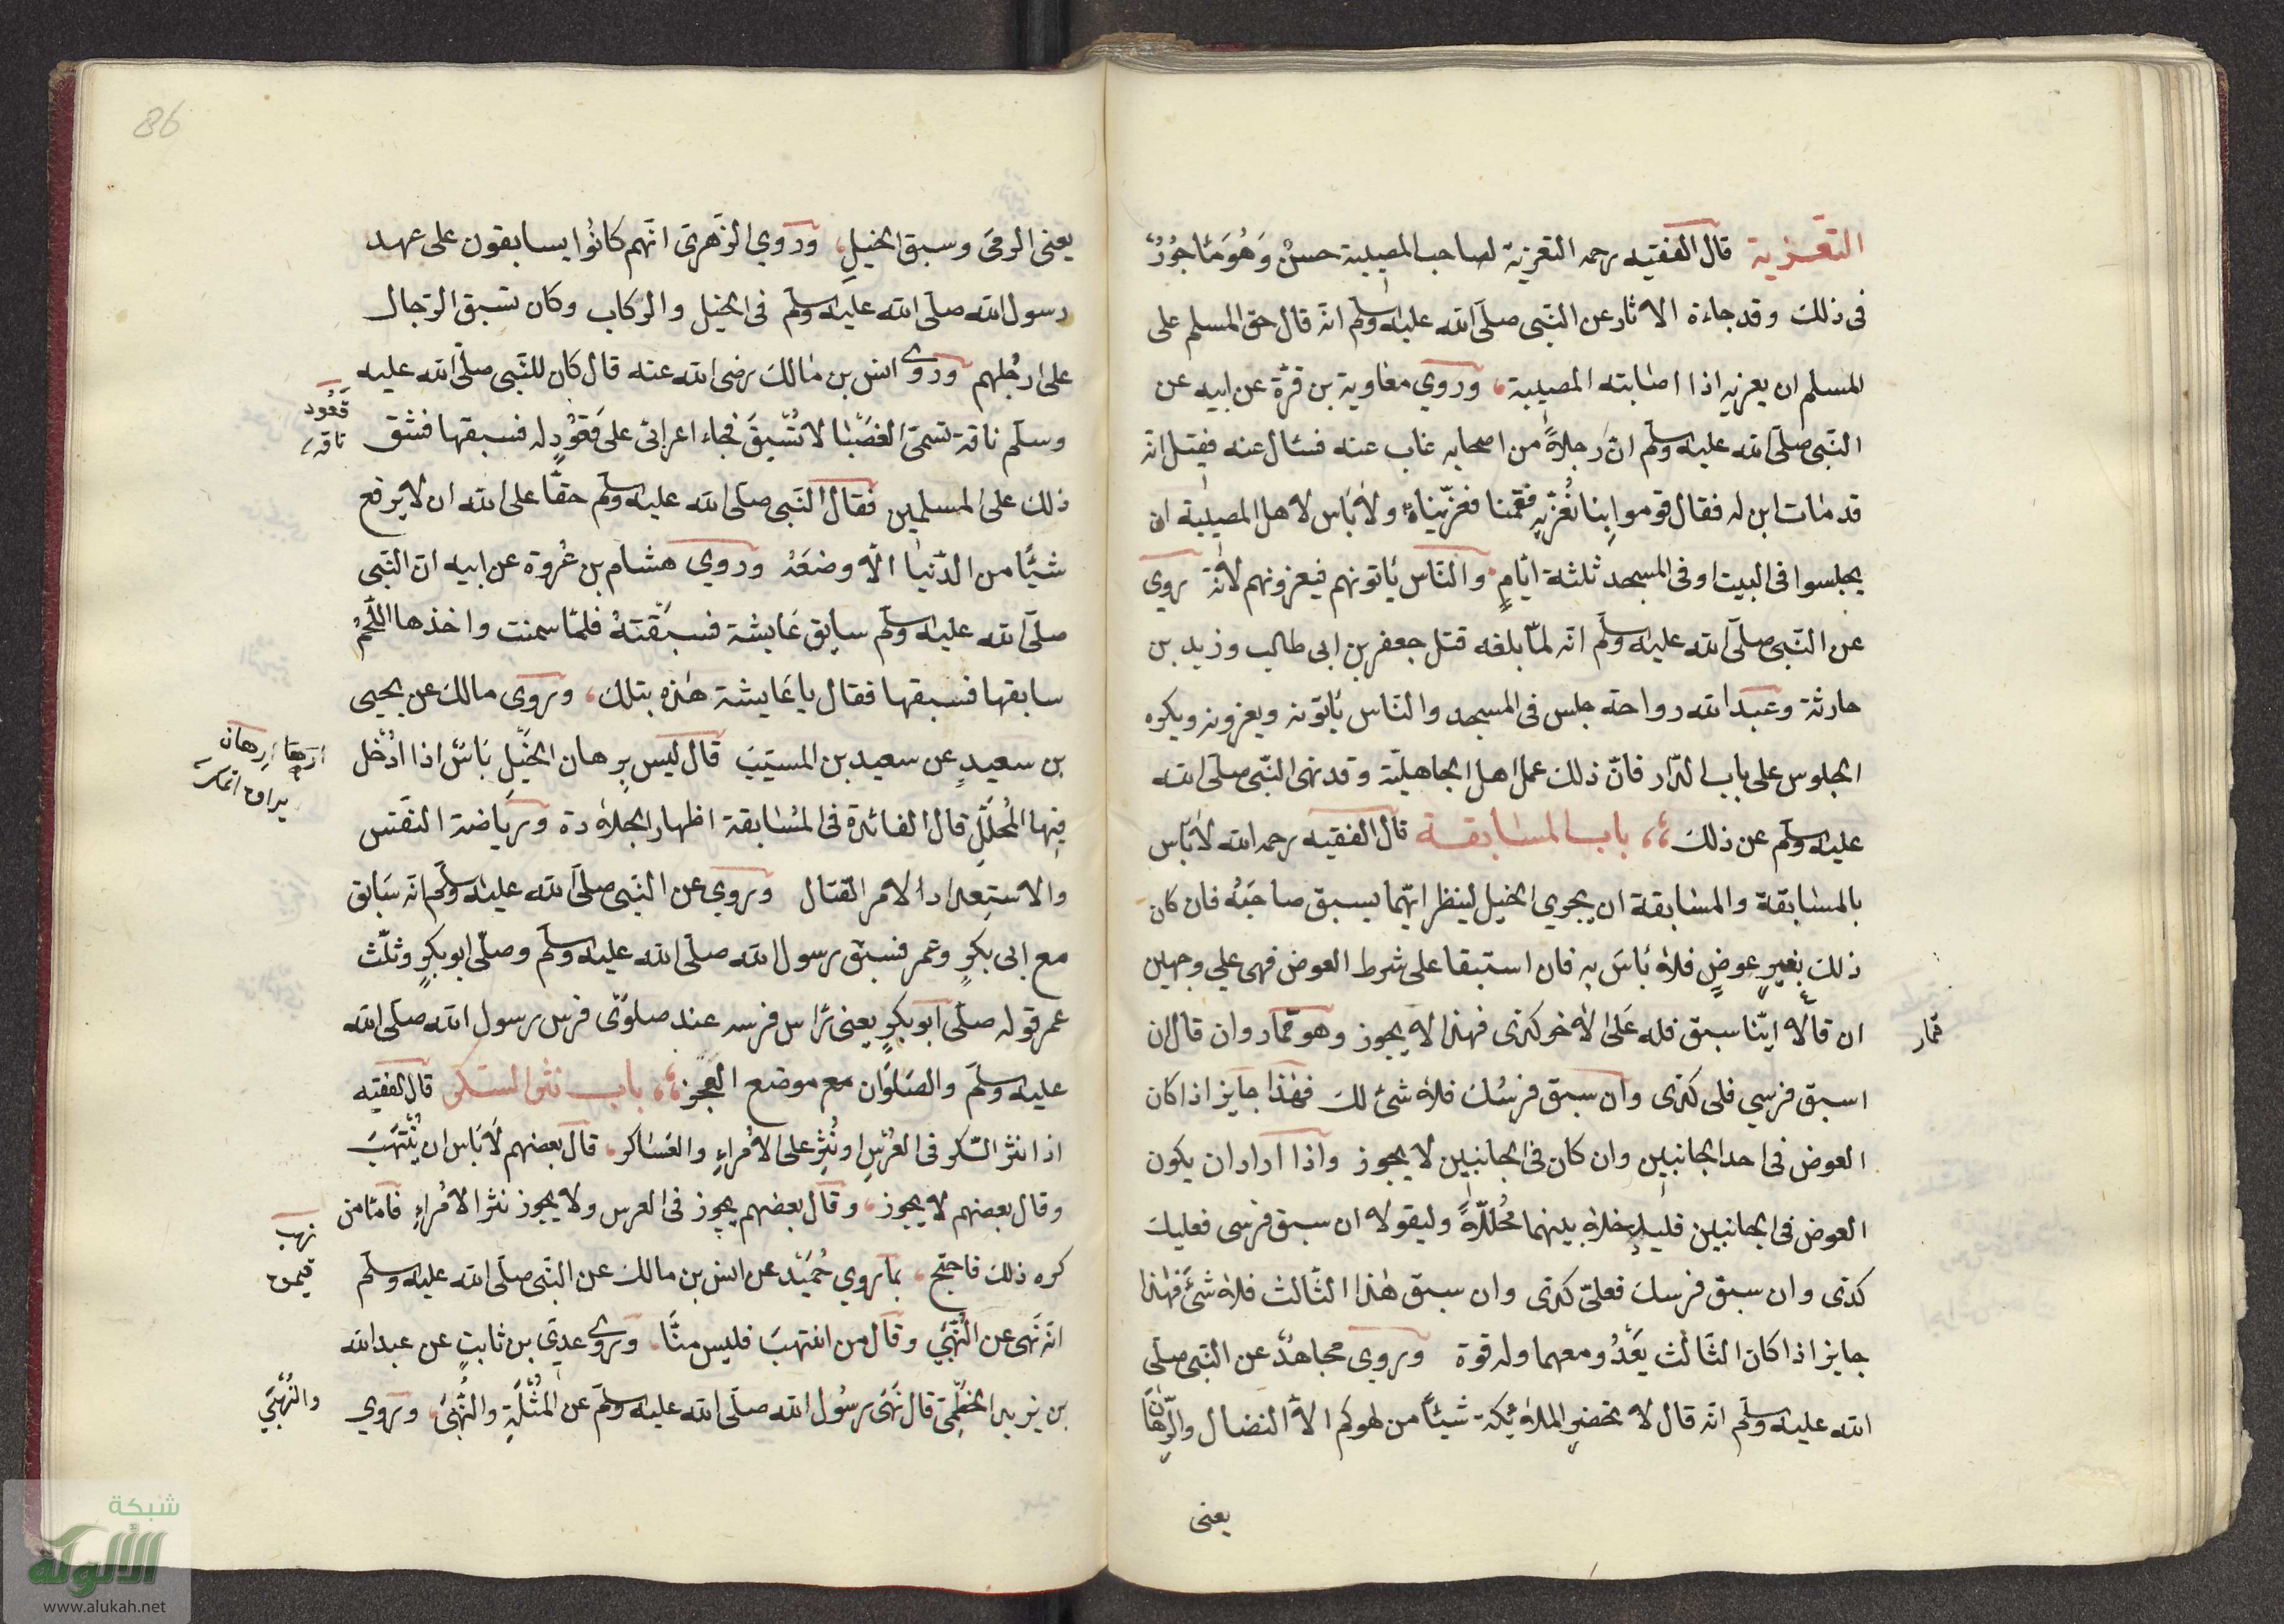 التعزية قال الفقيه رحمه التعزية لصاحب المصيبة حسنٌ وَهُوَ مَأجُورٌ
فى ذلك وقد جاءة الاثار عن النّبى صلّى الله عليه وسلّم انّه قال حق المسلم على
المسلم ان يعزيه اذا اصابته المصيبة، وروي معاوية بن قرّة عن ابيه عن
النّبى صلّى الله عليه وسلّم انّ رجلاً من اصحابه غاب عنه فسئال عنه فقيل انّه
قد مات ابن له فقال قوموا بِنا نُعزّيه فقمنا فعزّيناهُ ولا بَاس لاهل المصيبة ان
يجلسوا فى البيت او فى المسجد ثلثة ايّامٍ. والنّاس يَاتونهم فيعزونهم لانّه روي
عن النّبى صلّى الله عليه وسلّم انّه لمّا بلغه قتل جعفر بن ابى طالب وزيد بن
حارثة وعبد الله رواحة جلس فى المسجد والنّاس يَاتونه ويعزونه ويكره
الجلوس على باب الدّار فانّ ذلك عمل اهل الجاهليّة وقد نهى النّبى صلّى الله
عليه وسلّم عن ذلك ،، باب المسابقة قال الفقيه رحمه الله لا بَاس
بالمسابقة والمسابقة ان يجري الخيل لينظر ايّهما يسبق صاحبَهُ فان كان
ذلك بغير عوضٍ فلا بَاسَ به فان استبقا على شرط العوض فهى علي وجهين
ان قالا ايّنا سبق فله عَلىَ الاخر كذى فهذا لا يجوز وهو قمار وان قال ان
قمار
اسبق فرسي فلى كذى وان سبق فرسُك فلا شئ لك فهٰذا جايز اذا كان
العوض فى احد الجانبين وان كان فى الجانبين لا يجوز واذا اراد ان يكون
العوض فى الجانبين فليدخلا بينهما مُحلّلاً وليقولا ان سبق فرسى فعليك
كذى وان سبق فرسك فعلىّ كذى وان سبق هٰذا الثّالث فلا شئَ فهٰذا
جايز اذا كان الثّالث يَعْدُو معهما وله قوة وروى مجاهدٌ عن النّبى صلّى
الله عليه وسلّم انّه قال لا تحضر الملائكة شيئاً من لهوكم الاّ النضال والرّهان
يعنى
86
يعنى الرمىَ وسبق الخيلِ، وروي الزّهرىّ انّهم كانوا يسابقون على عهد
رسول الله صلّى الله عليه وسلّم فى الخيل والركاب وكان تسبق الرّجال
على ارجُلهم وروى انس بن مالك رضى الله عنه قال كان للنّبى صلّى الله عليه
وسلّم ناقة تسمىّ الغضبا لا تُسْبقَ فجاء اعرابىّ على قَعُودٍ له فسبقها فشق
قَعُود
ناقه
ذلك على المسلمين فقال النّبى صلّى الله عليه وسلّم حقًّا على الله ان لا يرفع
شيئًا من الدّنيا الّا وضعَهُ وروي هشام بن عُروة عن ابيه انّ النّبى
صلّى الله عليه وسلّم سابق عَايشة فسبقتهُ فلمّا سمنت واخذها اللّحمُ
سابقها فسبقها فقال يا عَايشة هٰذه بتلك، وروى مالك عن يحيى
بن سعيدٍ عن سعيد بن المسيّب قال ليس برهان الخيْلِ بَاسٌ اذا اُدْخل
فيها المُحلّلِ قال الفائدة فى المُسابقة اظهار الجلادة ورياضة النّفس
والاستعداد الامر القتال وروي عن النّبى صلّى الله عليه وسلّم انّه سَابق
مع ابى بكرٍ وعمر فسبق رسول الله صلّى الله عليه وسلّم وصلّى ابو بكرٍ وثلّث
عمر قوله صلّى ابو بكرٍ يعنى رَاس فرسه عند صلوَىْ فرس رسول الله صلّى الله
عليه وسلّم والصَلوَان مع موضع العَجُز ،، باب نثر السّكر قال الفقيه
اذا نثر السّكر فى العُرْسِ او نُثِر على الاُمراءِ والعَسَاكر، قال بعضهم لا بَاس ان يُنْتهَبَ
وقال بعضهم لا يجوز، وقال بعضهم يجوز فى العرس ولا يجوز نثر الاُمراءِ فامّا من
نهب
كره ذلك فاحتج، بما روي حُمَيْد عن انس بن مالك عن النّبى صلّى الله عليه وسلّم
انّه نَهى عن النُهْبَي وقال من انتهبَ فليس منّا. وروى عدىّ بن ثابتٍ عن عبد الله
بن يزيد الخطْمِىّ قال نَهى رسُول الله صلّى الله عليه وسلّم عن المُثْلَةِ والنُّهْبىَ، وروي
والنُهْبَي
شبكة
الألوكة
www.alukah.net